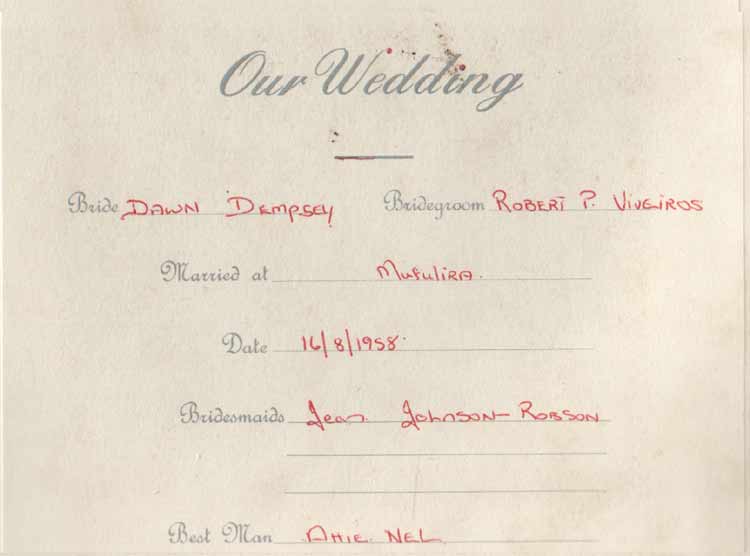 Our Wedding
Bride DAWN DEMPSEY Bridegroom ROBERT P. VIVEIROS
Married at MUFULIRA.
Date 16/8/1958.
Bridesmaids Jean JOHNSON-ROBSON
Best Man AHIE NEL